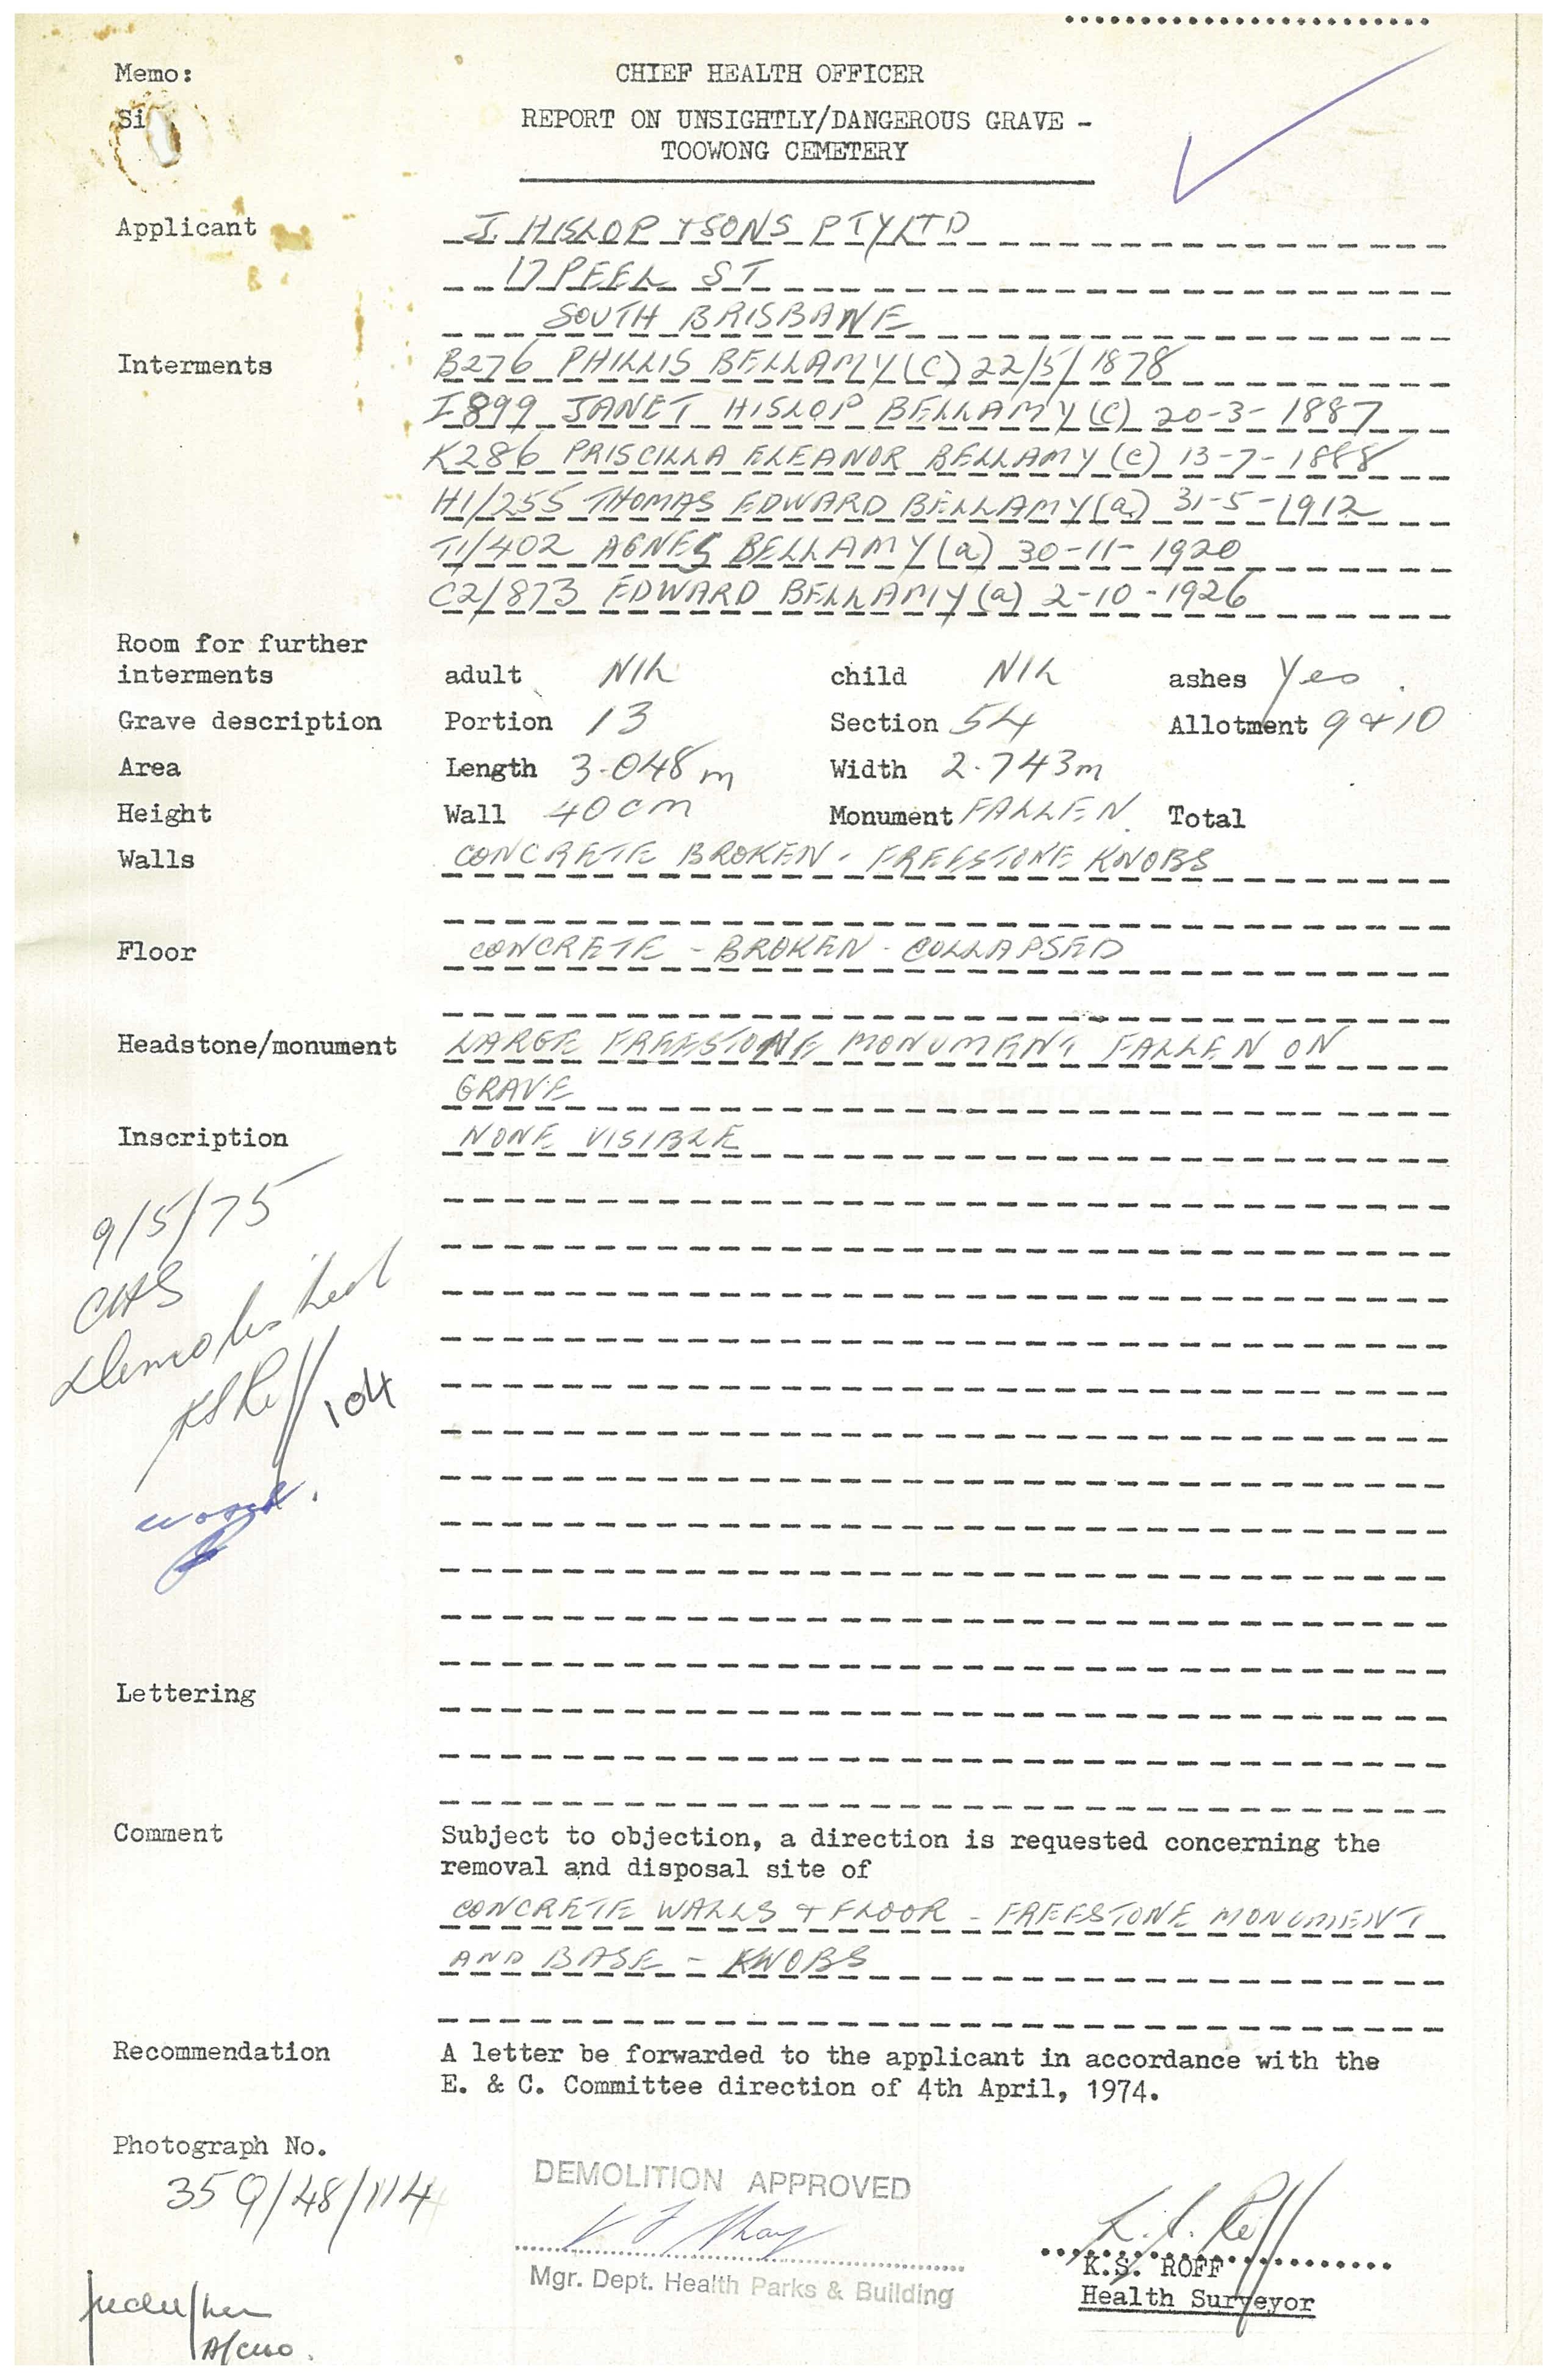 Memo: CHIEF HEALTH OFFICER
Si
REPORT ON UNSIGHTLY/DANGEROUS GRAVE -
TOOWONG CEMETERY
Applicant J. HISLOP & SONS PTY LTD
17 PEEL ST
SOUTH BRISBANE
Interments B276 PHILLIS BELLAMY (C) 22/5/1878
I899 JANET HISLOP BELLAMY (C) 20-3-1887
K286 PRISCILLA ELEANOR BELLAMY (C) 13-7-1888
H1/255 THOMAS EDWARD BELLAMY (a) 31-5-1912
T1/402 AGNES BELLAMY (a) 30-11-1920
C2/873 EDWARD BELLAMY (a) 2-10-1926
Room for further
interments adult NIL child NIL ashes Yes
Grave description Portion 13 Section 54 Allotment 9 & 10
Area Length 3.048m Width 2.743m
Height Wall 40cm Monument FALLEN Total
Walls CONCRETE BROKEN - FREESTONE KNOBS
Floor CONCRETE - BROKEN - COLLAPSED
Headstone/monument LARGE FREESTONE MONUMENT FALLEN ON
GRAVE
Inscription NONE VISIBLE
9/5/75
CHS
Demolished
KSRoff
104
Lettering
Comment Subject to objection, a direction is requested concerning the
removal and disposal site of
CONCRETE WALLS & FLOOR - FREESTONE MONUMENT
AND BASE - KNOBS
Recommendation A letter be forwarded to the applicant in accordance with the
E. & C. Committee direction of 4th April, 1974.
Photograph No.
359/48/114
DEMOLITION APPROVED
Mgr. Dept. Health Parks & Building
K.S. Roff
K.S. ROFF
Health Surveyor
A/CHO.